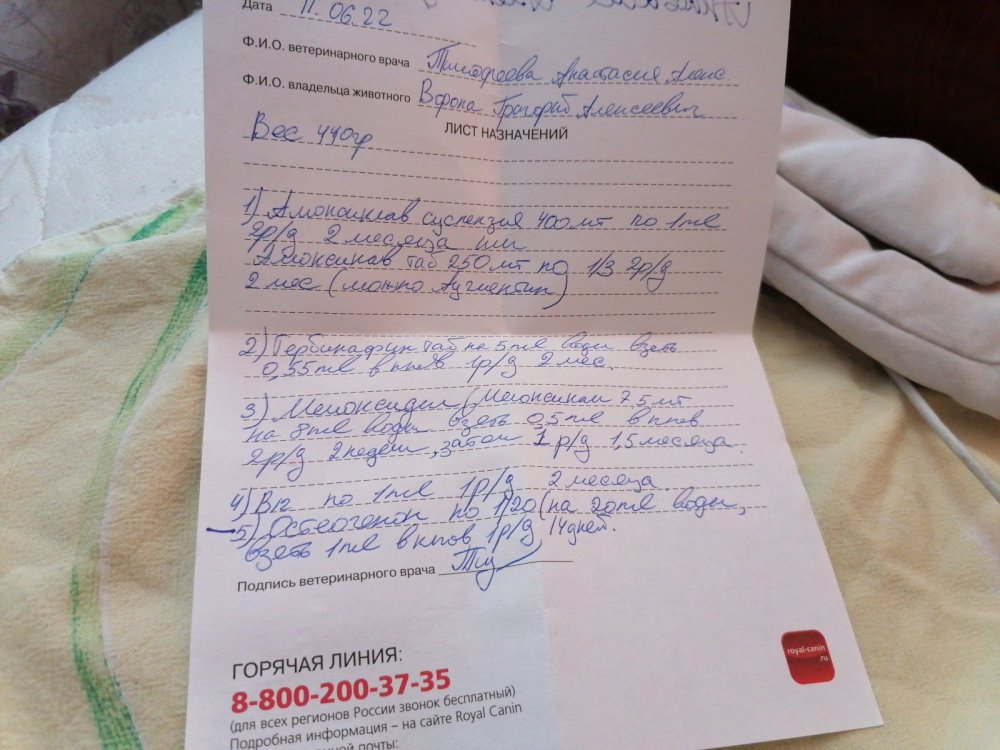 Дата 11.06.22
Ф.И.О. ветеринарного врача Тимофеева Анастасия Алекс.
Ф.И.О. владельца животного Ворона Григорий Алексеевич
ЛИСТ НАЗНАЧЕНИЙ
Вес 440гр
1) Амоксиклав суспензия 400мг по 1мл
2р/д 2 месяца или
Амоксиклав таб 250мг по 1/3 2р/д
2 мес (можно Аугментин)
2) Тербинафин таб на 5мл воды взять
0,55мл в клюв 1р/д 2 мес.
3) (Мелоксикам 7,5мг
на 8мл воды взять 0,5мл в клюв
2р/д 2 недели, затем 1 р/д 1,5 месяца.
4) В12 по 1мл 1р/д 2 месяца
5) Остеогенон по 1/20 (на 20мл воды,
взять 1мл в клюв 1р/д 14 дней.
Подпись ветеринарного врача
ГОРЯЧАЯ ЛИНИЯ:
8-800-200-37-35
(для всех регионов России звонок бесплатный)
Подробная информация – на сайте Royal Canin
почты:
royal-canin
.ru